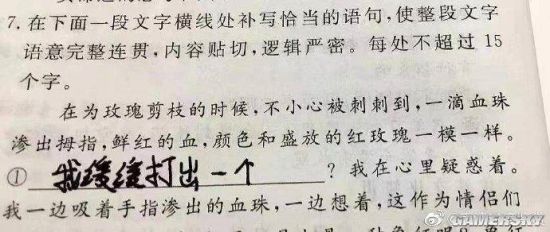 7. 在下面一段文字横线处补写恰当的语句,使整段文字
语意完整连贯,内容贴切,逻辑严密。每处不超过 15
个字。
在为玫瑰剪枝的时候,不小心被刺刺到,一滴血珠
渗出拇指,鲜红的血,颜色和盛放的红玫瑰一模一样。
① 我缓缓打出一个 ? 我在心里疑惑着。
我一边吸着手指渗出的血珠,一边想着,这作为情侣们
GAMERSKY